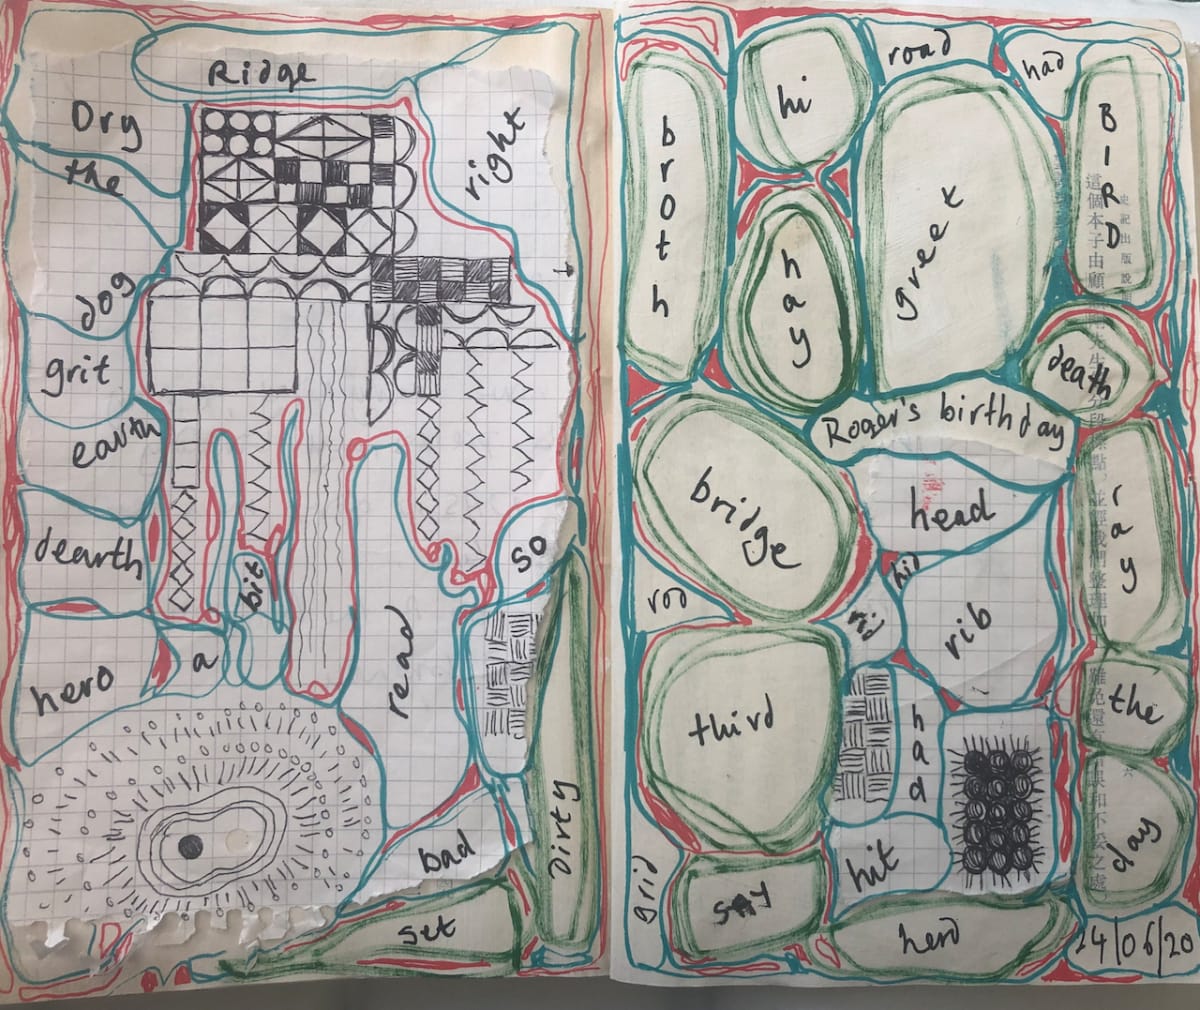 Ridge
Dry
the
right
dog
grit
earth
dearth
so
bit
a
hero
read
Dirty
bad
set
road
had
hi
broth
BIRD
greet
hay
史記出版說
這個本子由顧
death
Roger's birthday
bridge
head
ray
hid
rod
rid
rib
third
had
the
hit
day
grid
say
24/06/20